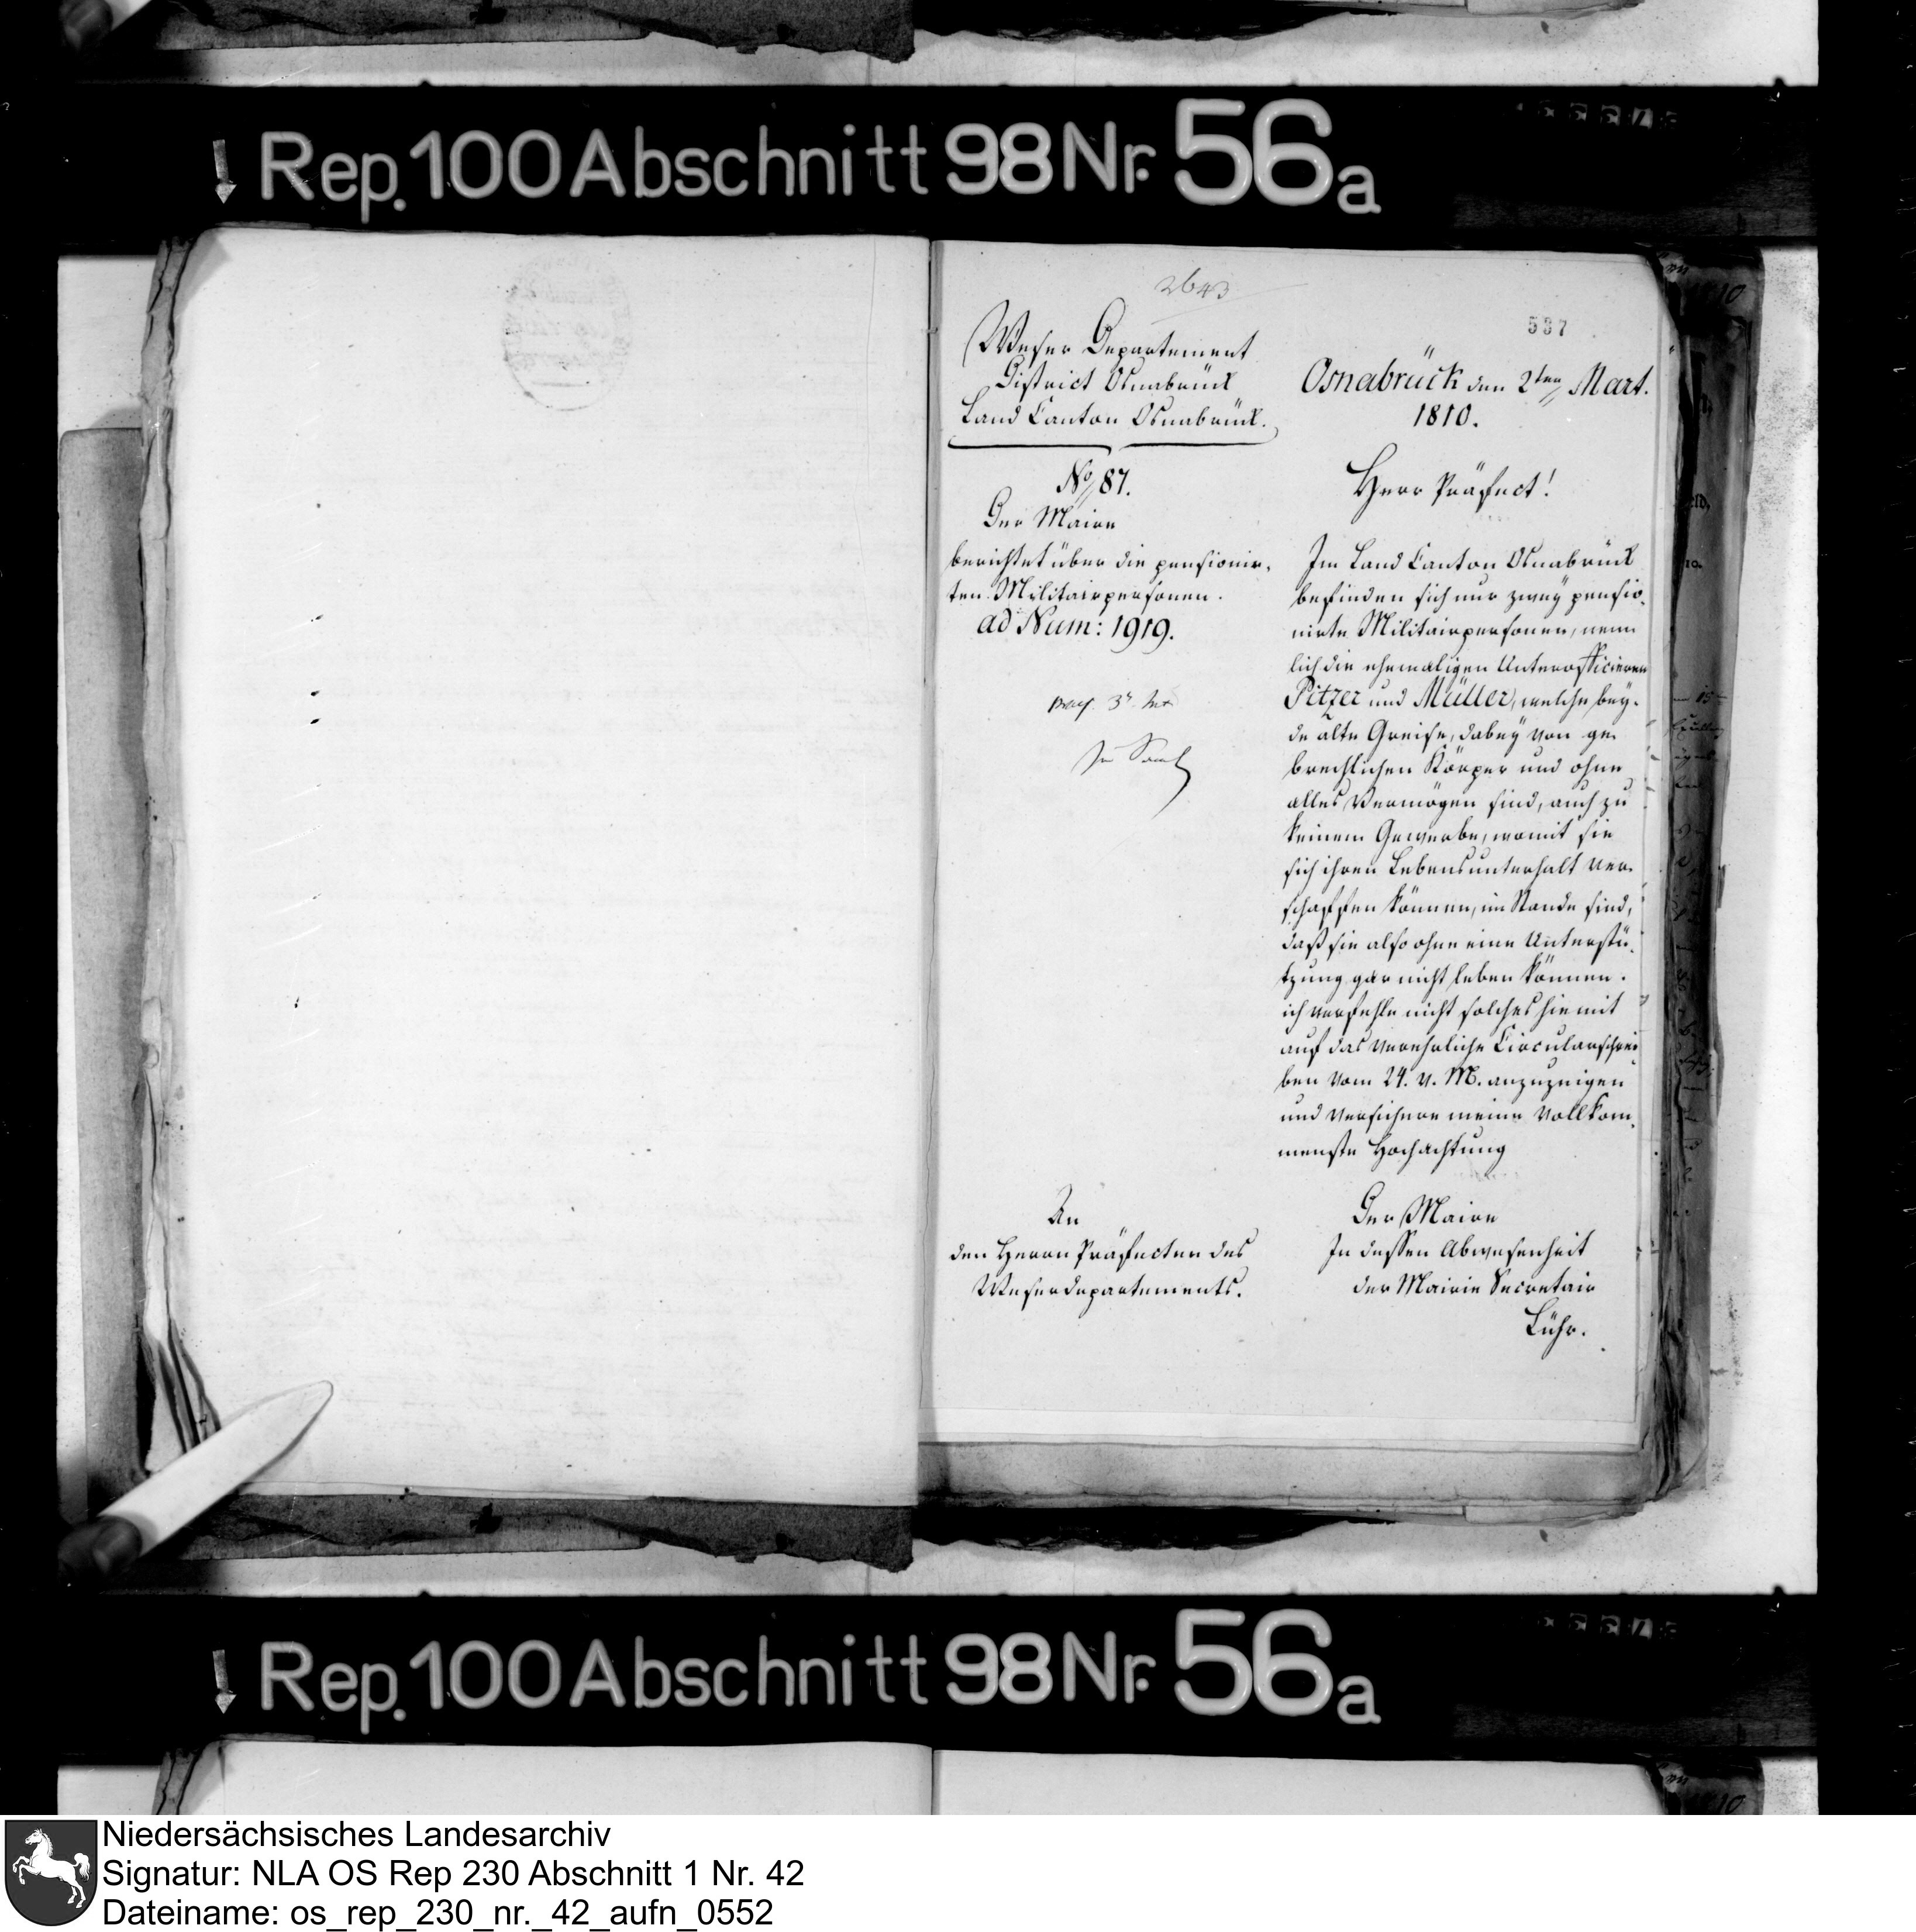 Rep. 100 Abschnitt 98 Nr. 56a
2643
537
Weser Departement
District Osnabrück
Land Canton Osnabrück.
No 87.
Der Maire
berichtet über die pensionir-
ten Militairpersonen.
ad Num: 1919.
Osnabrück den 2ten Mart.
1810.
Herr Präfect!
Im Land Canton Osnabrück
befinden sich nur zwey pensio-
nirte Militairpersonen, nem
lich die ehemaligen Unterofficieren
Pitzer und Müller, welche bey-
de alte Greise, dabey von ge-
brechlichen Körper und ohne
alles Vermögen sind, auch zu
keinem Gewerbe, womit sie
sich ihren Lebensunterhalt ver-
schaffen können, im Stande sind,
daß sie also ohne eine Unterstü-
tzung gar nicht leben können.
ich verfehle nicht solches hiemit
auf das verehrliche Circularschrei-
ben vom 24. v. M. anzuzeigen
und versichere meine vollkom-
menste Hochachtung
An
den Herrn Präfecten des
Weserdepartements.
Der Maire
In dessen Abwesenheit
der Mairie Secretair
Lühr.
Rep. 100 Abschnitt 98 Nr. 56a
Niedersächsisches Landesarchiv
Signatur: NLA OS Rep 230 Abschnitt 1 Nr. 42
Dateiname: os_rep_230_nr._42_aufn_0552